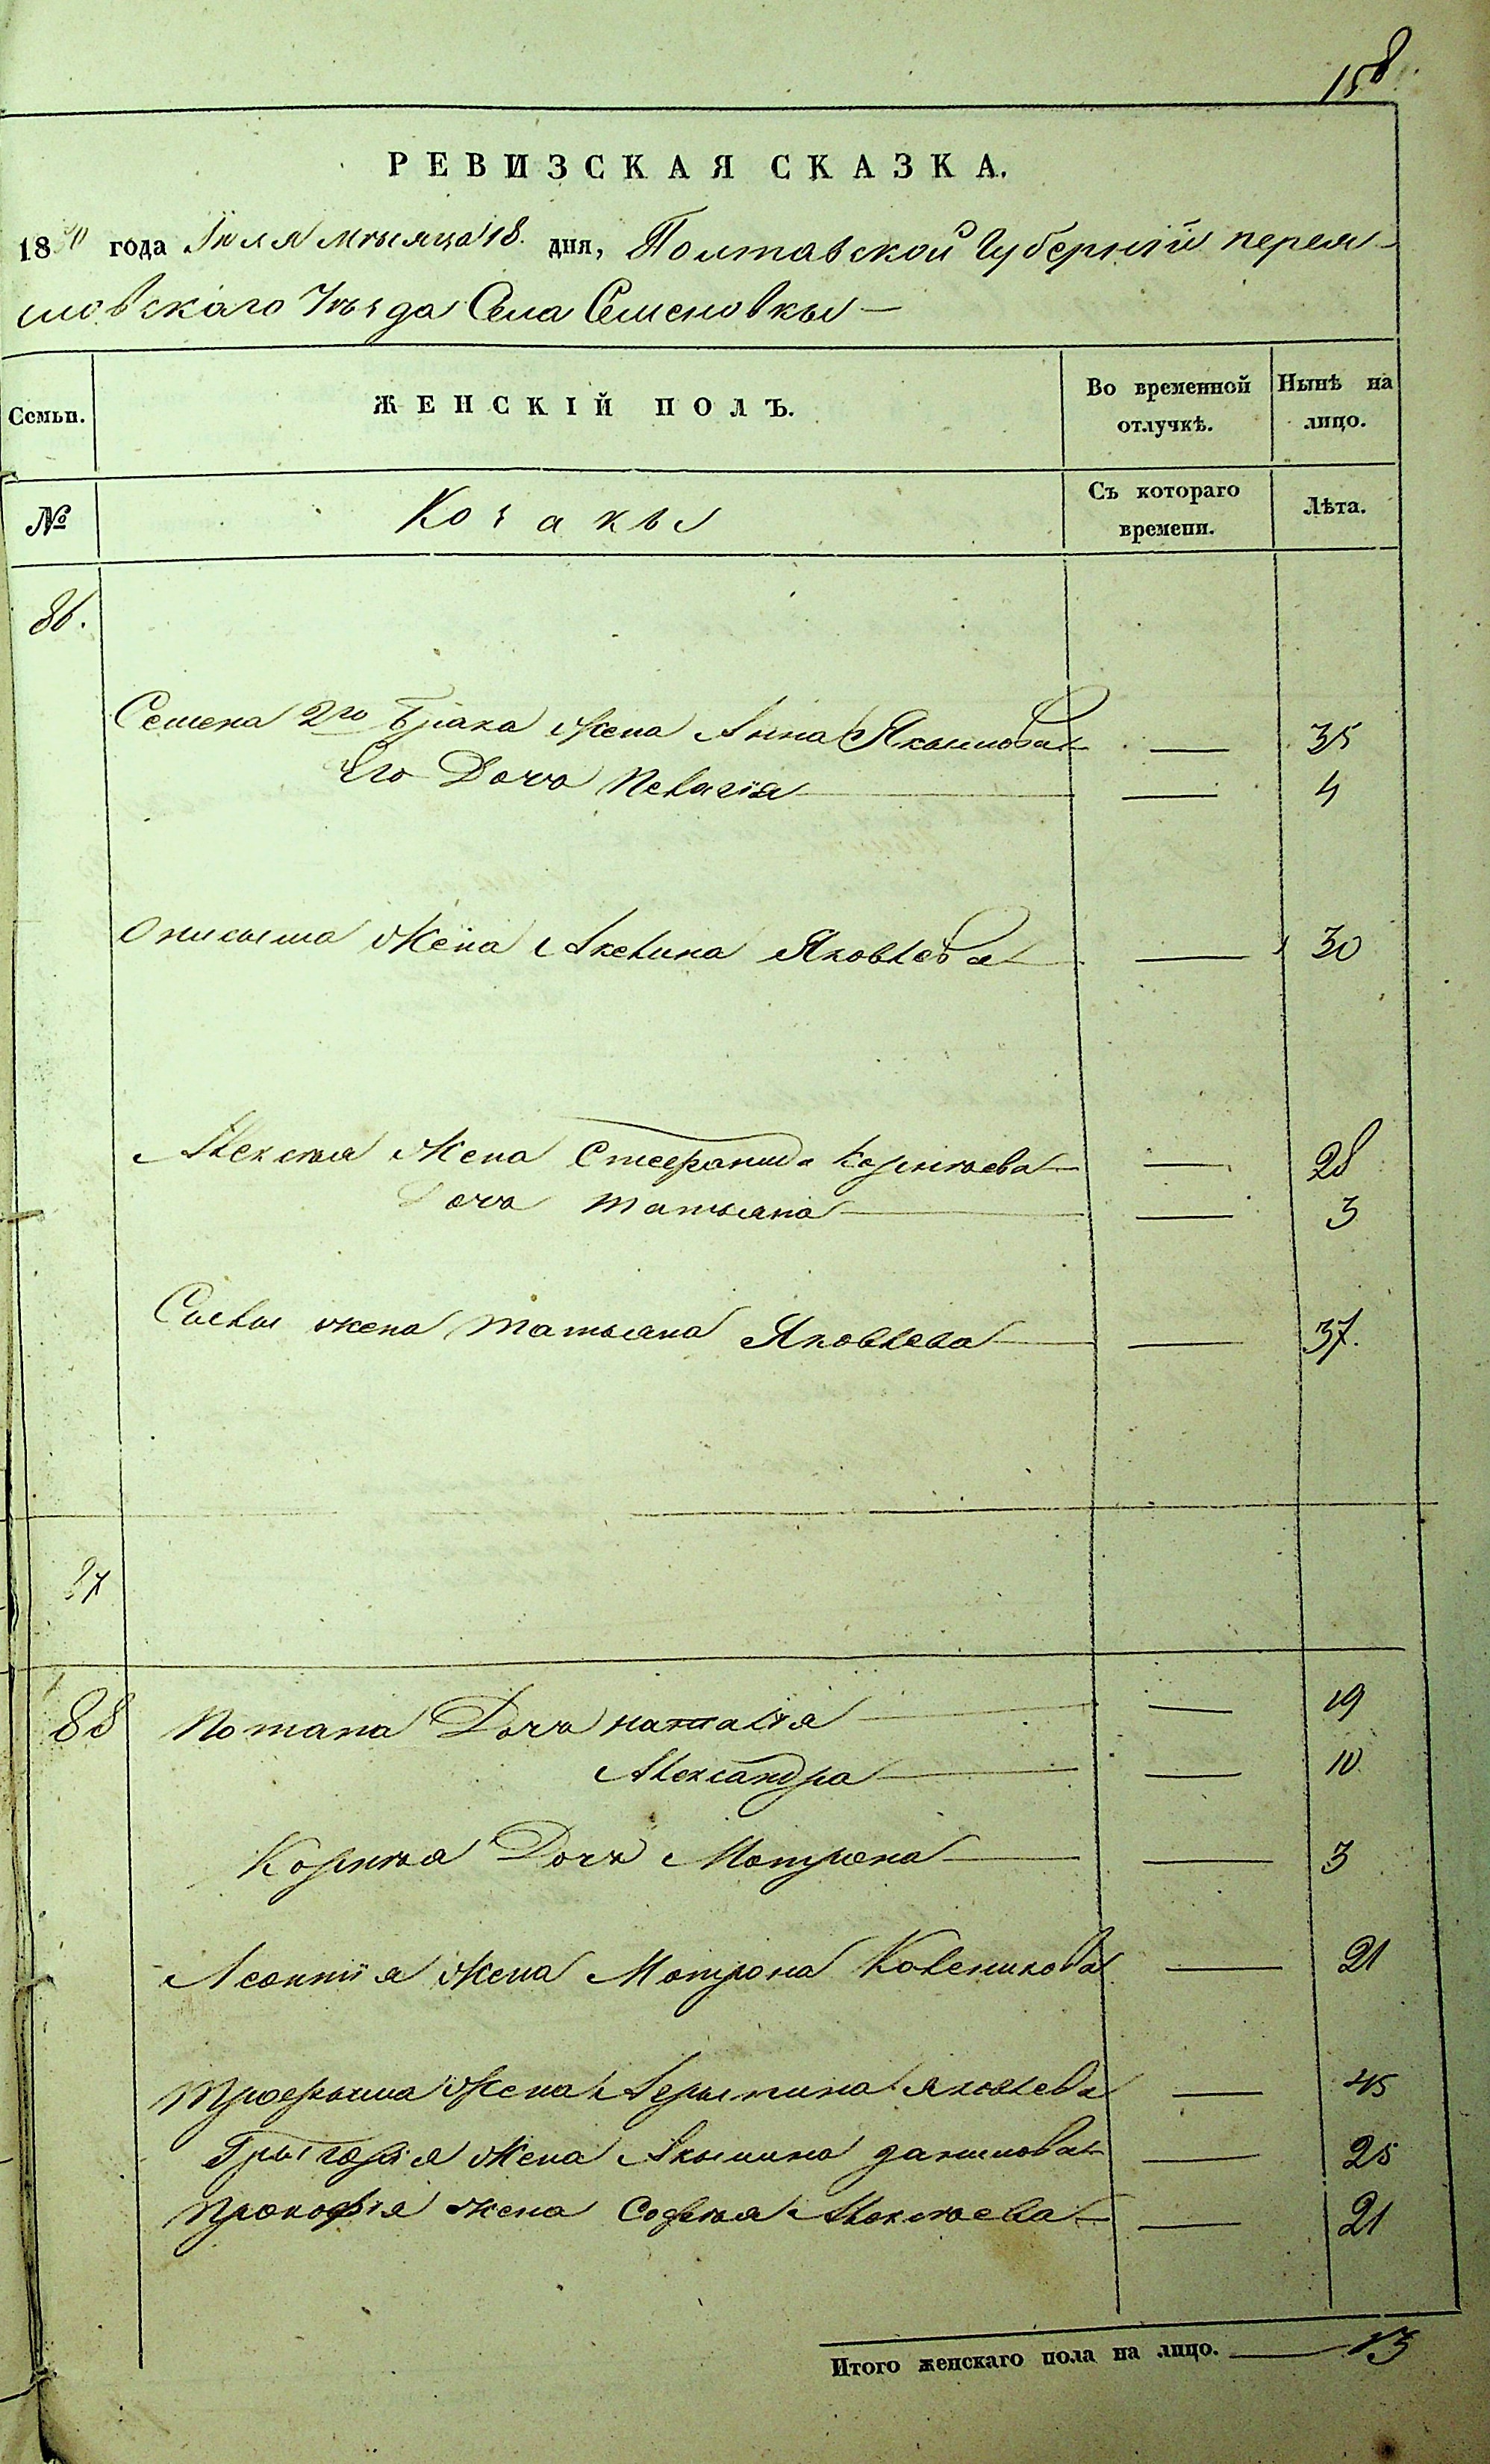 158
РЕВИЗСКАЯ СКАЗКА.
1850 года Іюля мѣсяца 18. дня, Полтавской Губерніи перея-
словскаго Уѣзда Села Семеновкы
Семьи. ЖЕНСКІЙ ПОЛЪ. Во временной отлучкѣ. Нынѣ на лицо.
№ Козакы Съ котораго времени. Лѣта.
86.
Семена 2го Брака Жена Анна Якымова — 35
Его Дочь Пелагія — 4
Онисыма Жена Акелина Яковлева — 30
Алексѣя Жена Стефанида Корнѣева — 28
Дочь Татьяна — 3
Сылы жена Татьяна Яковлева — 37.
87
88 Потапа Дочь наталія — 19
Александра — 10
Корнѣя Дочь Мотрона — 3
Леонтія Жена Мотрона — 21
Трофыма Жена яковлева — 45
Грыгорія Жена Акылина данилова — 25
Прокофія жена Софія Алексѣева — 21
Итого женскаго пола на лицо. — 13